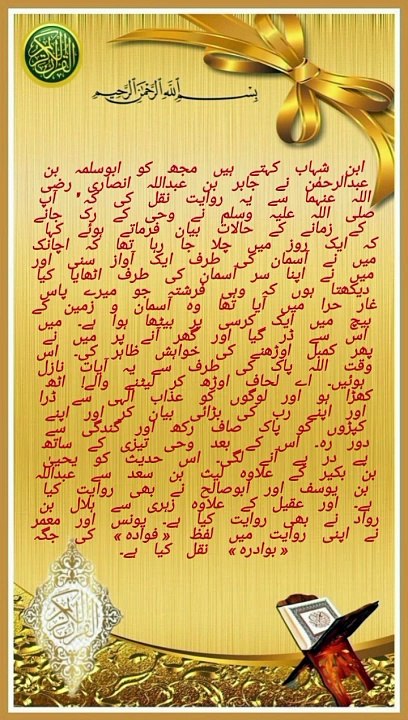 القرآن الكريم
بِسْمِ اللَّهِ الرَّحْمَٰنِ الرَّحِيمِ
ابن شہاب کہتے ہیں مجھ کو ابوسلمہ بن
عبدالرحمٰن نے جابر بن عبداللہ انصاری رضی
اللہ عنہما سے یہ روایت نقل کی کہ آپ
صلی اللہ علیہ وسلم نے وحی کے رک جانے
کے زمانے کے حالات بیان فرماتے ہوئے کہا
کہ ایک روز میں چلا جا رہا تھا کہ اچانک
میں نے آسمان کی طرف ایک آواز سنی اور
میں نے اپنا سر آسمان کی طرف اٹھایا کیا
دیکھتا ہوں کہ وہی فرشتہ جو میرے پاس
غار حرا میں آیا تھا وہ آسمان و زمین کے
بیچ میں ایک کرسی پر بیٹھا ہوا ہے۔ میں
اس سے ڈر گیا اور گھر آنے پر میں نے
پھر کمبل اوڑھنے کی خواہش ظاہر کی۔ اس
وقت اللہ پاک کی طرف سے یہ آیات نازل
ہوئیں۔ اے لحاف اوڑھ کر لیٹنے والے! اٹھ
کھڑا ہو اور لوگوں کو عذاب الٰہی سے ڈرا
اور اپنے رب کی بڑائی بیان کر اور اپنے
کپڑوں کو پاک صاف رکھ اور گندگی سے
دور رہ۔ اس کے بعد وحی تیزی کے ساتھ
پے در پے آنے لگی۔ اس حدیث کو یحییٰ
بن بکیر کے علاوہ لیث بن سعد سے عبداللہ
بن یوسف اور ابوصالح نے بھی روایت کیا
ہے۔ اور عقیل کے علاوہ زہری سے ہلال بن
رواد نے بھی روایت کیا ہے۔ یونس اور معمر
نے اپنی روایت میں لفظ «فوادہ» کی جگہ
«بوادرہ» نقل کیا ہے۔
القرآن الكريم